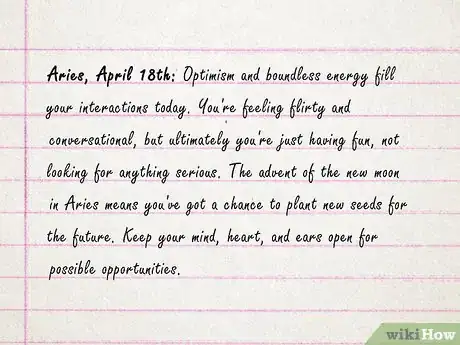 Aries, April 18th: Optimism and boundless energy fill
your interactions today. You're feeling flirty and
conversational, but ultimately you're just having fun, not
looking for anything serious. The advent of the new moon
in Aries means you've got a chance to plant new seeds for
the future. Keep your mind, heart, and ears open for
possible opportunities.
wikiHow